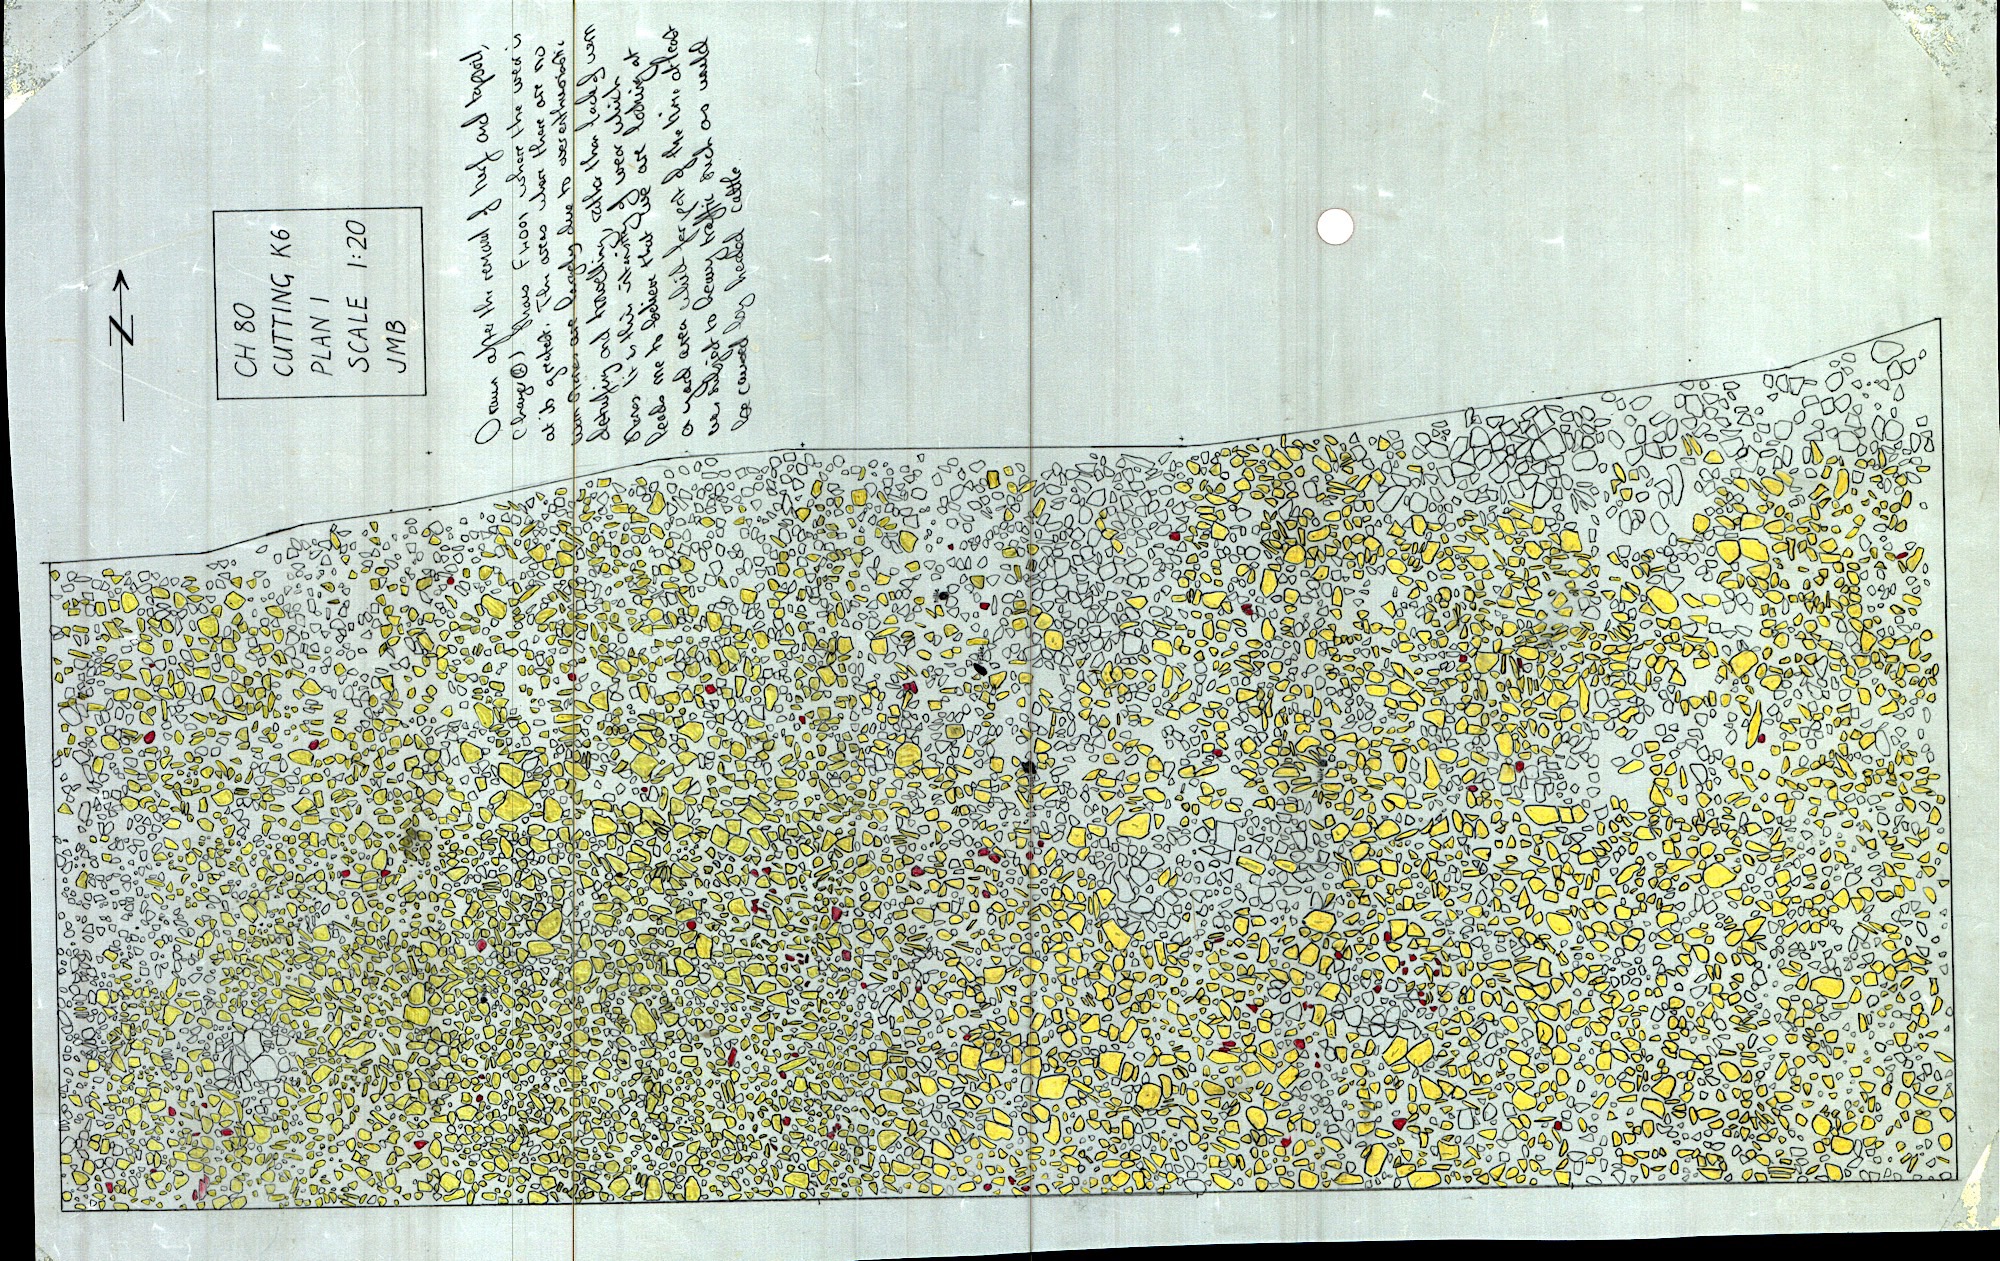 N
CH 80
CUTTING K6
PLAN 1
SCALE 1:20
JMB
Drawn after the removal of turf and topsoil,
shows where the wear is
at its greatest. The areas where there are no
worn stones are largely due to overenthusiastic
and trowelling, rather than lack of worn
stones. It is this intensity of wear which
leads me to believe that we are looking at
a yard area which for part of the time at least
was subject to heavy traffic such as would
be caused by herded cattle.